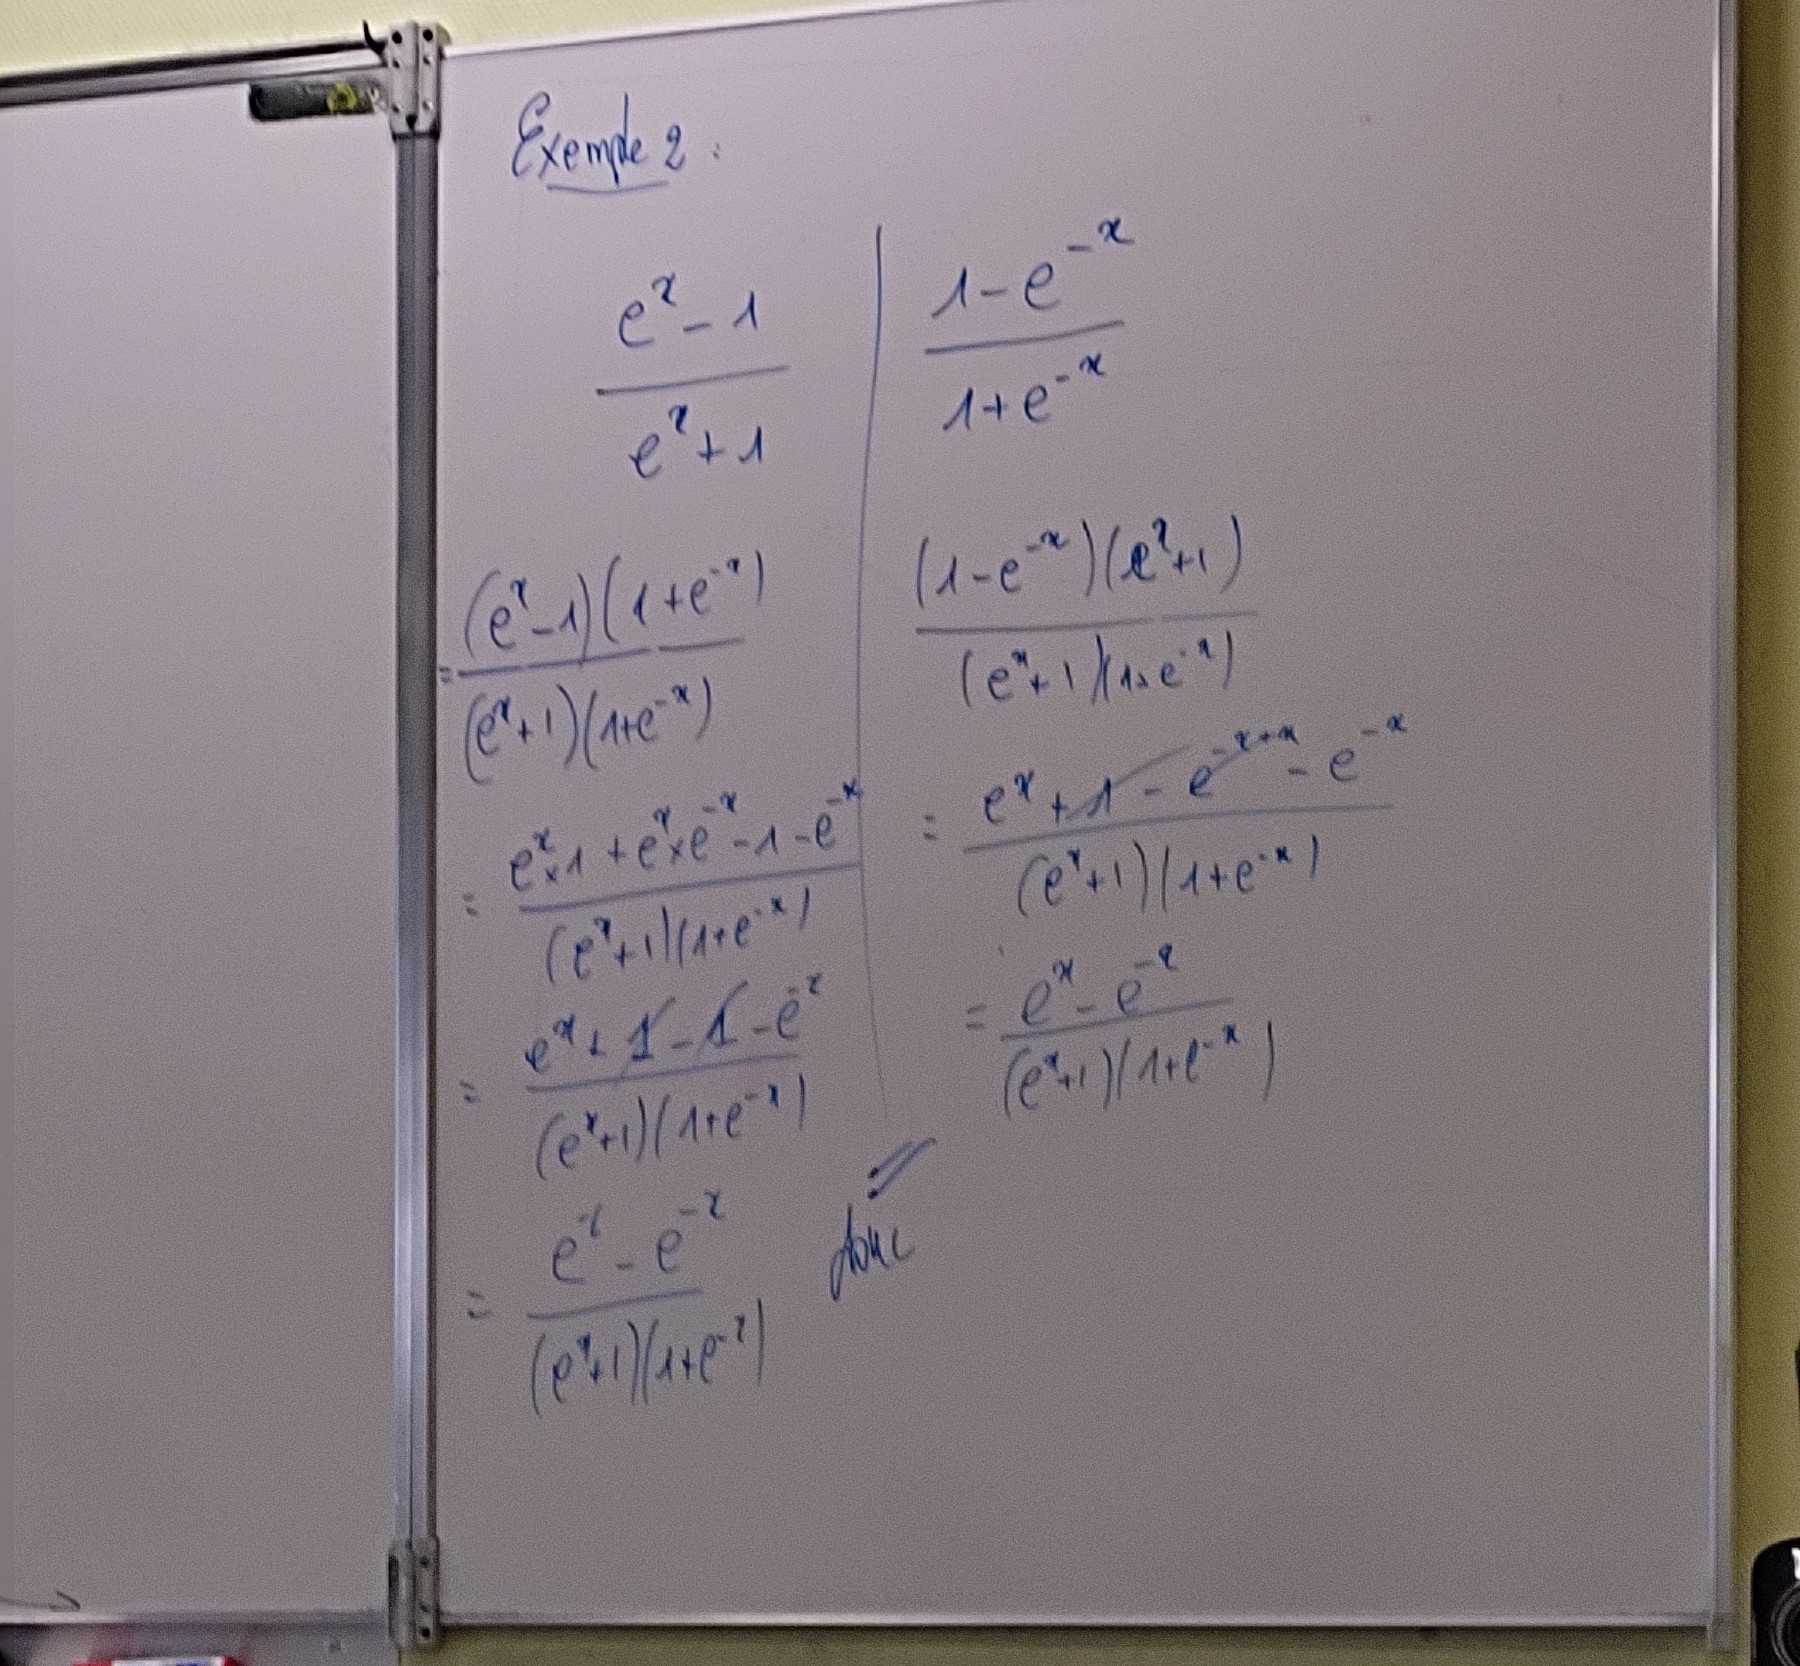 Exemple 2 :
e^x - 1
e^x + 1
= (e^x - 1)(1 + e^-x)
(e^x + 1)(1 + e^-x)
= e^x × 1 + e^x × e^-x - 1 - e^-x
(e^x + 1)(1 + e^-x)
= e^x + 1 - 1 - e^-x
(e^x + 1)(1 + e^-x)
= e^x - e^-x
(e^x + 1)(1 + e^-x)
1 - e^-x
1 + e^-x
(1 - e^-x)(e^x + 1)
(e^x + 1)(1 + e^-x)
= e^x + 1 - e^-x+x - e^-x
(e^x + 1)(1 + e^-x)
= e^x - e^-x
(e^x + 1)(1 + e^-x)
=
donc